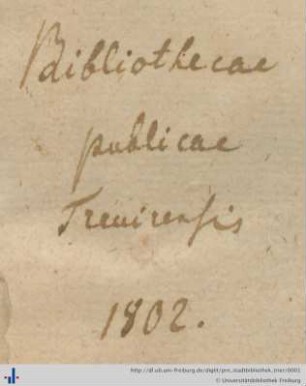 Bibliothecae
publicae
Trevirensis
1802.
http://dl.ub.uni-freiburg.de/diglit/prn_stadtbibliothek_trier/0001
© Universitätsbibliothek Freiburg